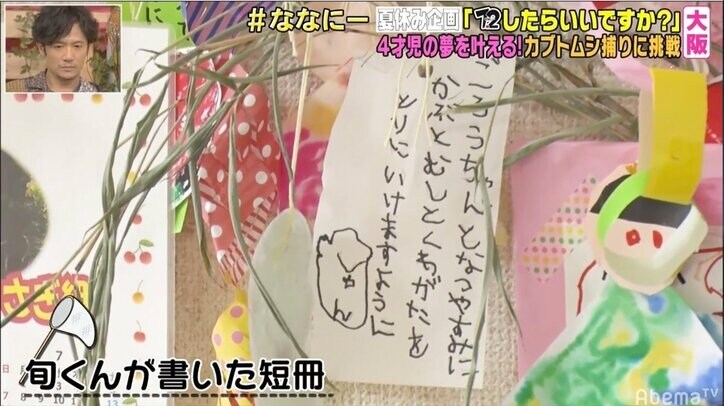 #ななにー
夏休み企画
したらいいですか?」
大阪
4才児の夢を叶える!カブトムシ捕りに挑戦
こうちゃんとなつやすみに
かぶとむしとくわがたを
とりにいけますように
しゅん
旬くんが書いた短冊
AbemaTV